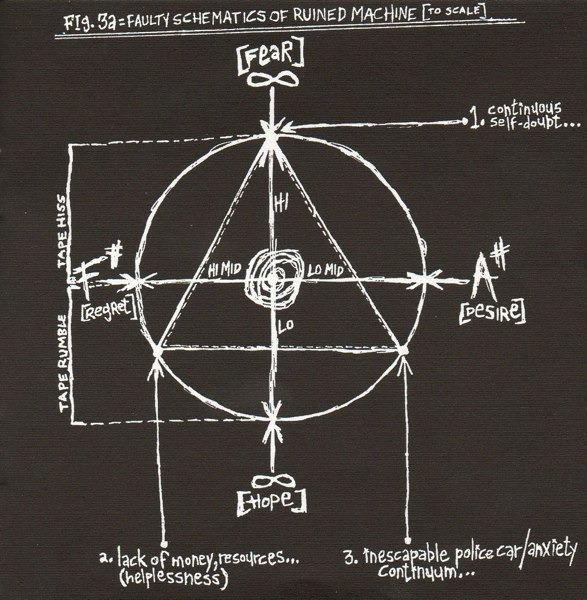 FIG. 3a = FAULTY SCHEMATICS OF RUINED MACHINE [TO SCALE]
[FeaR]
∞
1. continuous
self-doubt...
HI
TAPE HISS
F#
HI MID
LO MID
A#
[RegRet]
[DesiRe]
LO
TAPE RUMBLE
∞
[HOPe]
2. lack of money, resources...
(helplessness)
3. inescapable police car/anxiety
continuum...